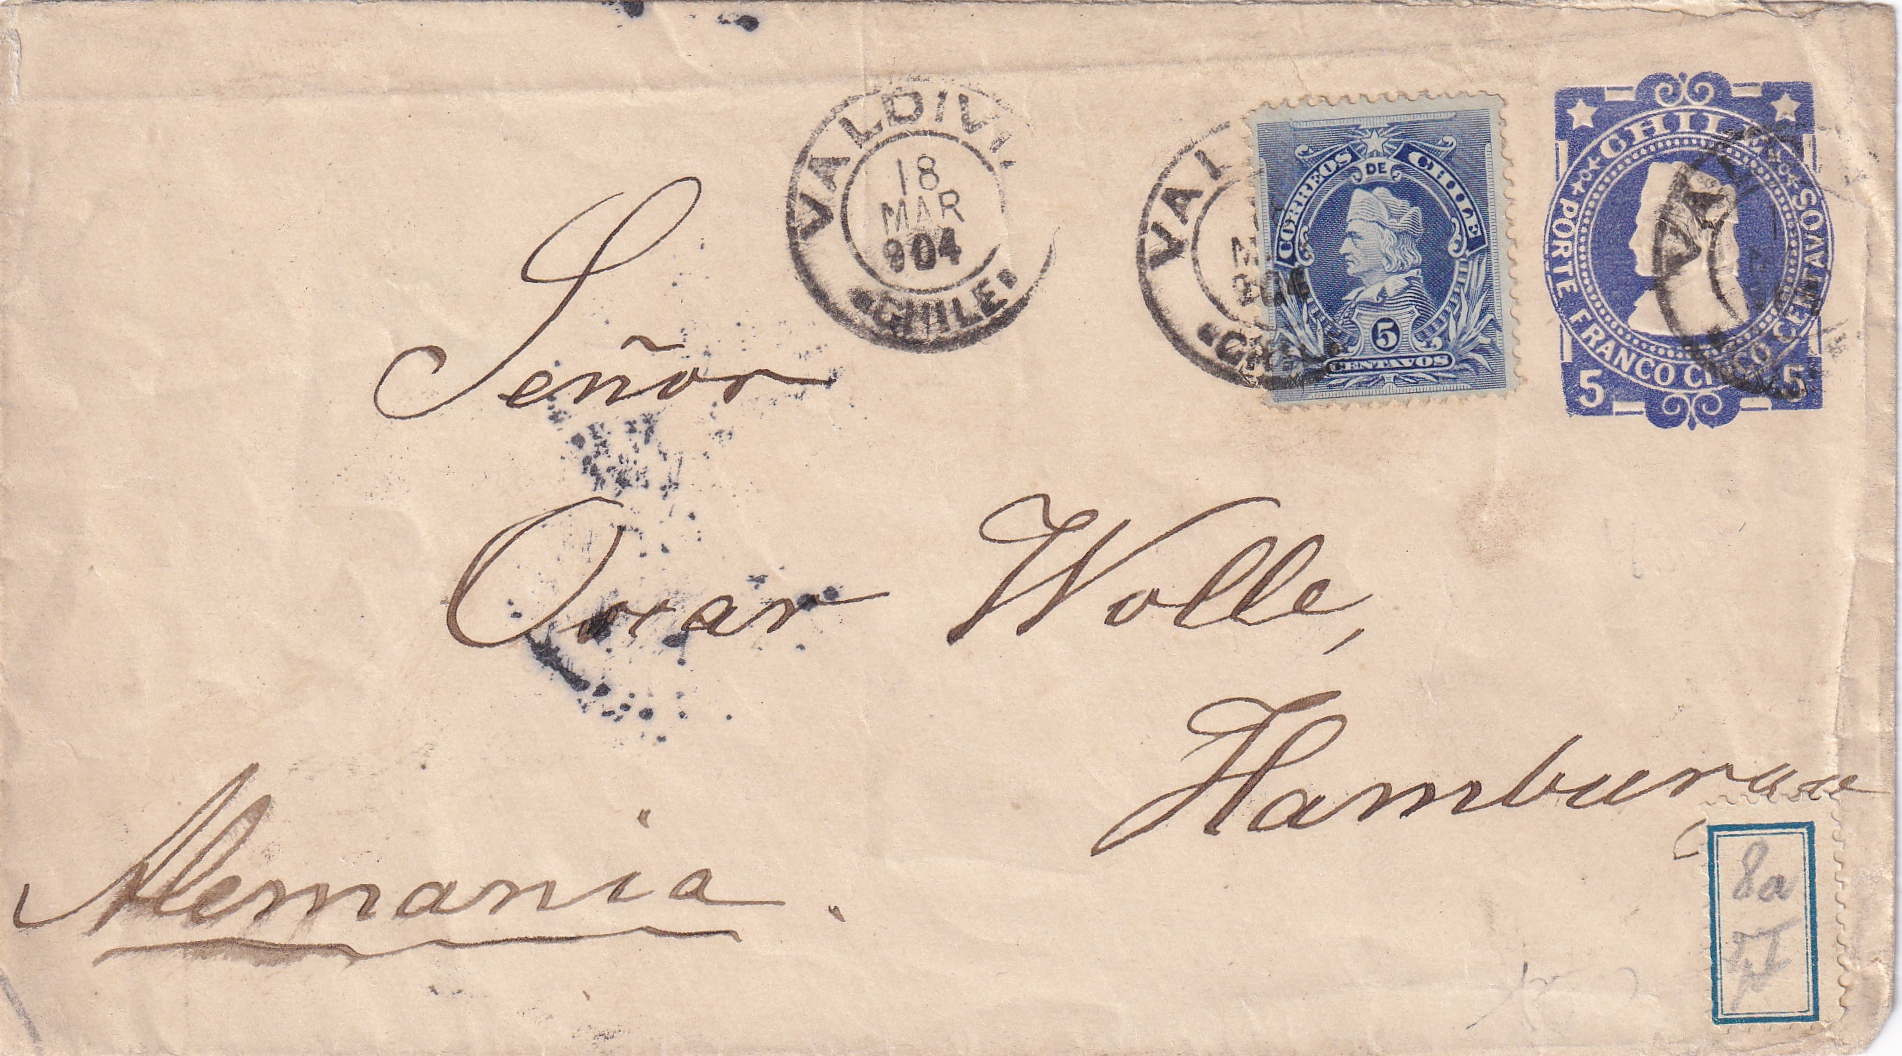 VALDIVI
18
MAR
904
CHILE
VAL
M
904
CHIL
CORREOS DE CHILE
5
CENTAVOS
CHILE
PORTE FRANCO CINCO CENTAVOS
5 5
VA
Señor
Oscar Wolle,
Hamburgo
Alemania.
8a